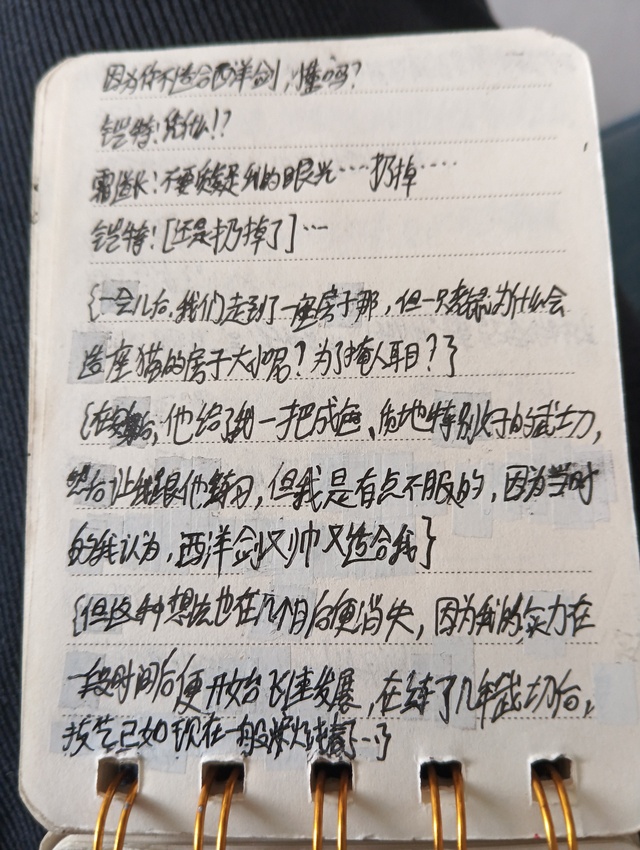 因为你不适合西洋剑，懂吗？
铠特：凭什么！？
霜道长：不要质疑我的眼光……扔掉……
铠特：[还是扔掉了]…
{一会儿后，我们走到了一座房子那，但一只老 为什么会
造座猫的房子大小呢？为了掩人耳目？}
{在 后，他给了我一把成 、质地特别好的武士刀，
然后让我跟他练习，但我是有点不服的，因为当时
的我认为，西洋剑又帅又适合我}
{但这种想法也在几个月后便消失，因为我的实力在
一段时间后便开始飞速发展，在练了几年武士刀后，
技艺已如现在一般炉火纯青了…}